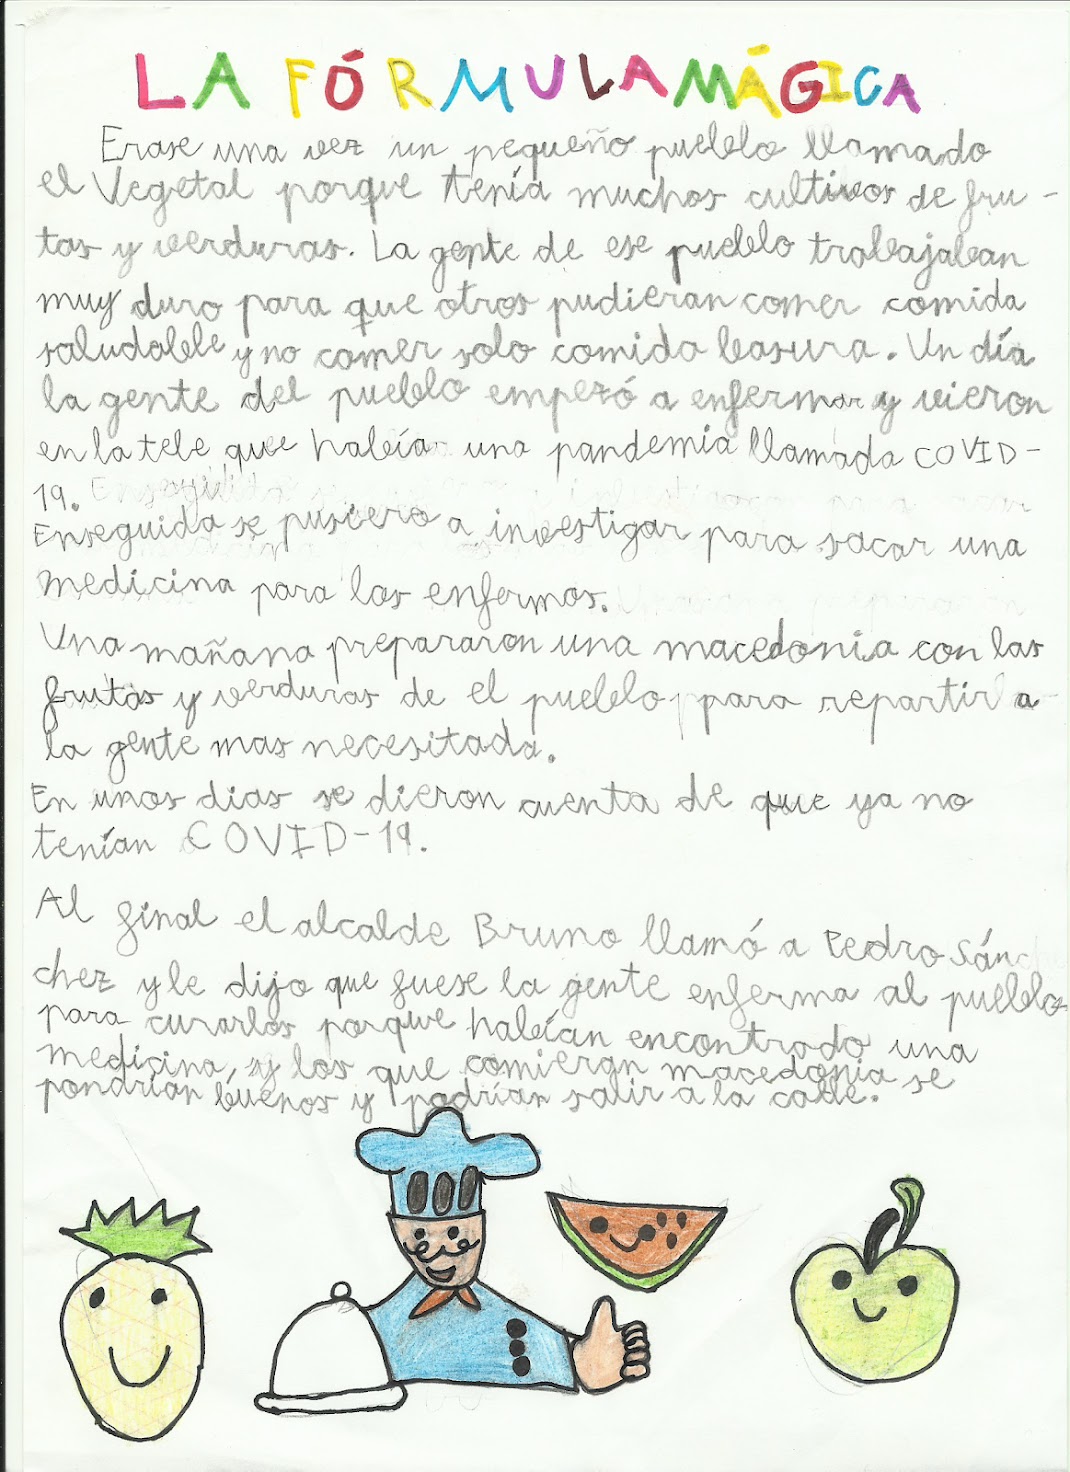 LA FÓRMULA MÁGICA
Erase una vez un pequeño pueblo llamado
el Vegetal porque tenía muchos cultivos de fru-
tas y verduras. La gente de ese pueblo trabajaban
muy duro para que otros pudieran comer comida
saludable y no comer solo comida basura. Un día
la gente del pueblo empezó a enfermar y vieron
en la tele que había una pandemia llamada COVID-
19.
Enseguida se pusiero a investigar para sacar una
medicina para los enfermos.
Una mañana prepararon una macedonia con las
frutas y verduras de el pueblo para repartir a
la gente mas necesitada.
En unos dias se dieron cuenta de que ya no
tenían COVID-19.
Al final el alcalde Bruno llamó a Pedro Sánche
chez y le dijo que fuese la gente enferma al pueblo
para curarlos porque habían encontrado una
medicina, y los que comieran macedonia se
pondrían buenos y podrían salir a la calle.